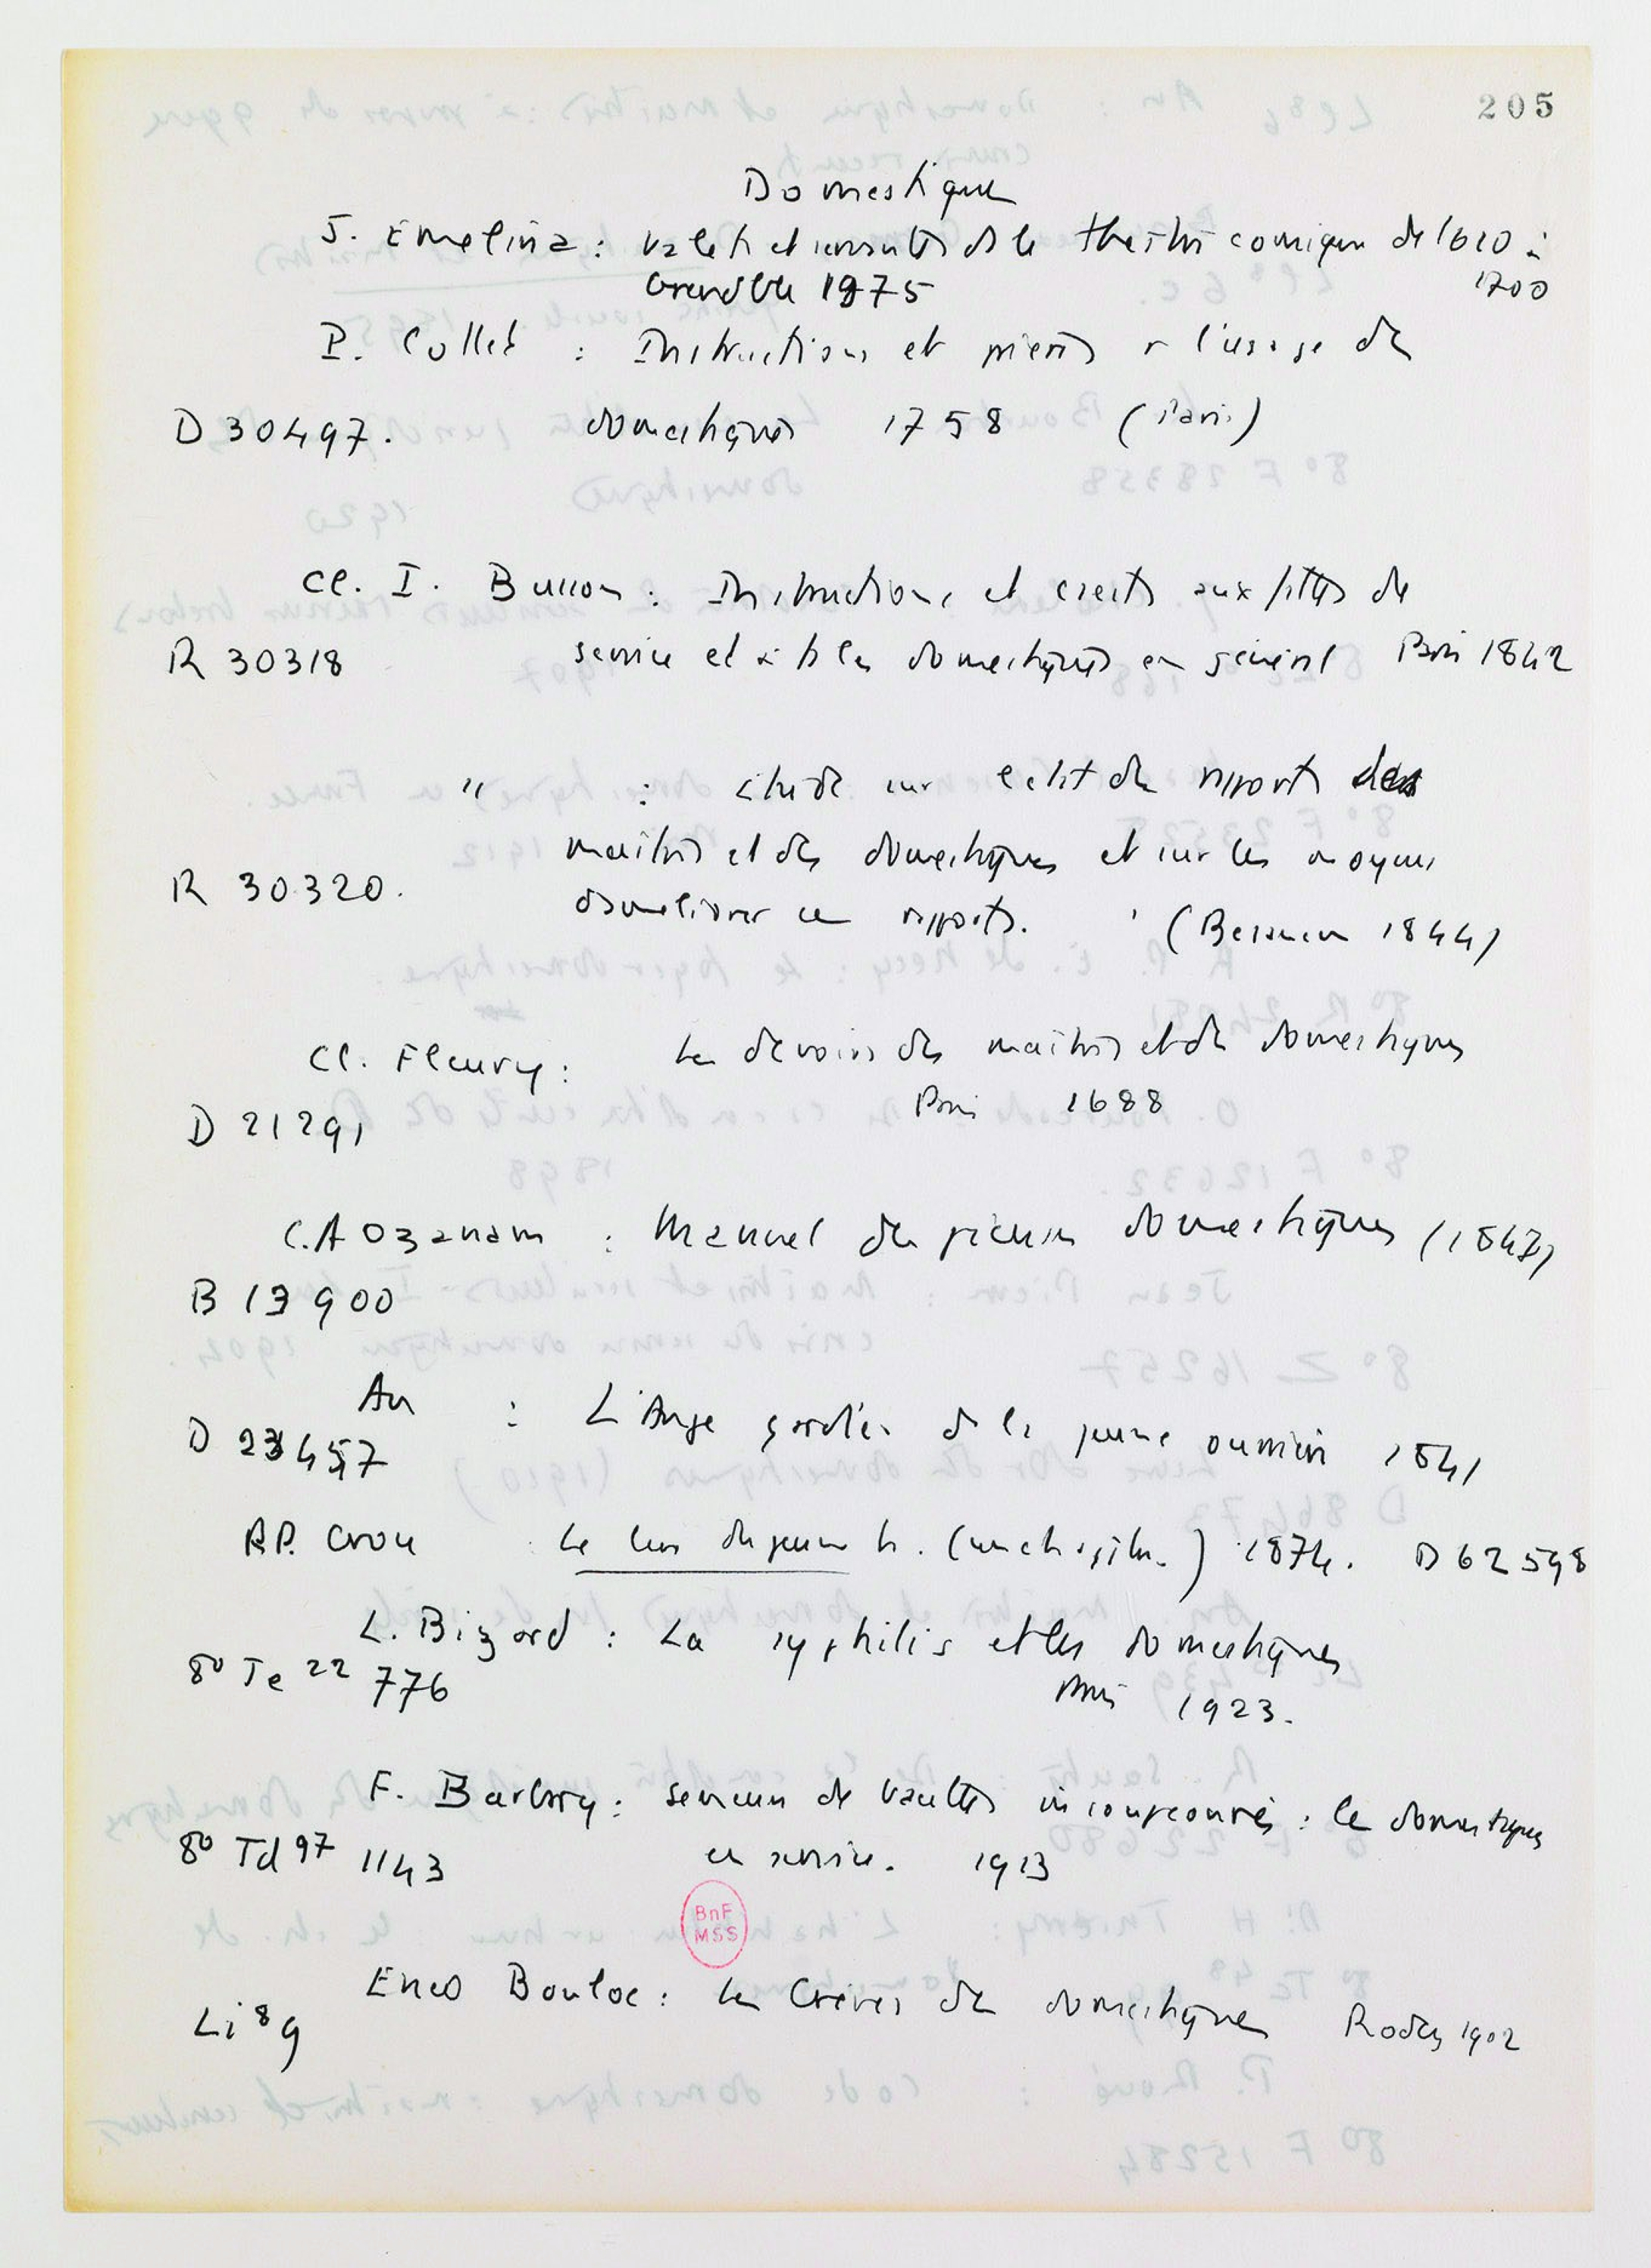 205
Domestique
J. Emelina : valets et servantes ds le théâtre comique de 1610 à
Grenoble 1975 1700
P. Collet : Instructions et prières à l'usage des
D 30497. domestiques 1758 (Paris)
Cl. I. Busson : Instructions et conseils aux filles de
R 30318 service et à ts les domestiques en général Paris 1842
" : Etude sur l'état des rapports des
maîtres et des domestiques et sur les moyens
R 30320. d'améliorer ces rapports. (Besançon 1844)
Cl. Fleury : Les devoirs des maîtres et des domestiques
D 21291 Paris 1688
C.A Ozanam : Manuel des pieuses domestiques (1847)
B 19900
An : L'Ange gardien de la jeune ouvrière 1841
D 23457
R.P. Crou Le livre des jeunes 1874. D 62598
L. Bizard : La syphilis et les domestiques
8° Te 22 776 Paris 1923.
F. Barbry : semeurs de bacilles insoupçonnés : les domestiques
8° Td 97 1143 en service. 1913
BnF
MSS
Enco Bouloc : Les Grèves des domestiques Rodez 1902
Li 8 9